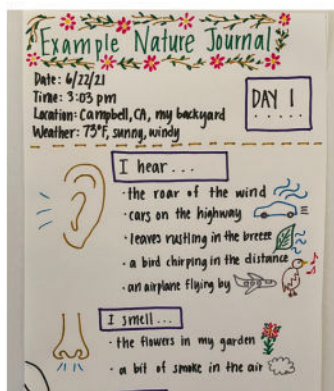 Example Nature Journal
Date: 6/22/21
Time: 3:03 pm
Location: Campbell, CA, my backyard
Weather: 73°F, sunny, windy
DAY 1
I hear...
· the roar of the wind
· cars on the highway
· leaves rustling in the breeze
· a bird chirping in the distance
· an airplane flying by
I smell...
· the flowers in my garden
· a bit of smoke in the air